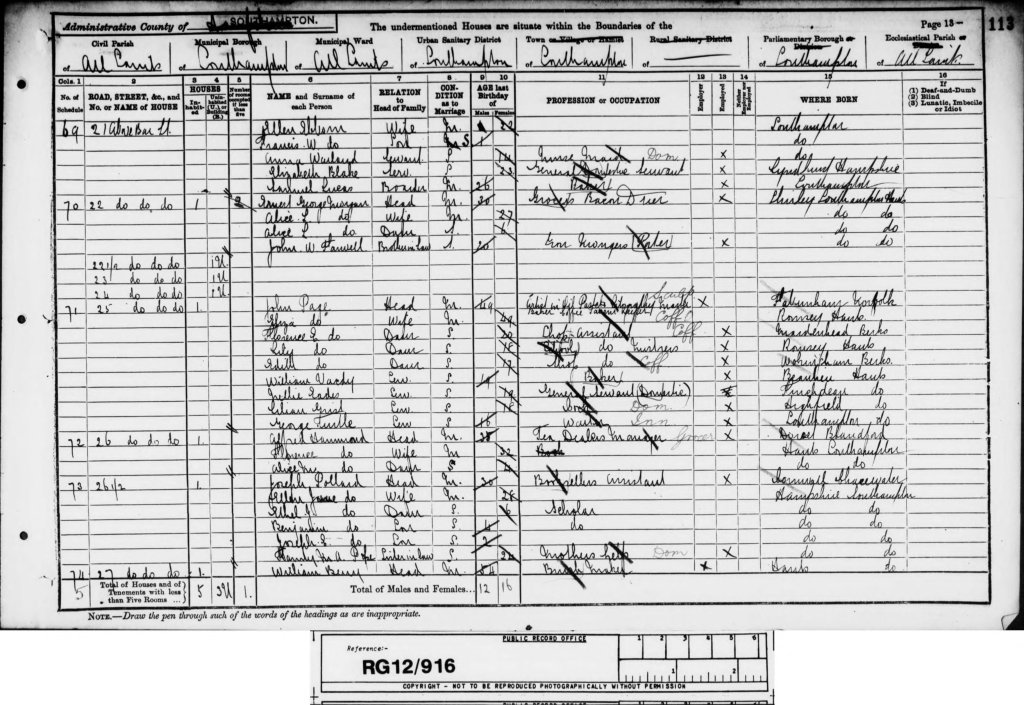 Administrative County of SOUTHAMPTON.
The undermentioned Houses are situate within the Boundaries of the
Page 13
113
Civil Parish
of All Saints
Municipal Borough
of Southampton
Municipal Ward
of All Saints
Urban Sanitary District
of Southampton
Town or Village or Hamlet
of Southampton
Rural Sanitary District
of
Parliamentary Borough or Division
of Southampton
Ecclesiastical Parish or District
of All Saints
Cols. 1 2 3 4 5 6 7 8 9 10 11 12 13 14 15 16
No. of Schedule
ROAD, STREET, &c., and No. or NAME of HOUSE
HOUSES
Inhabited
Uninhabited (U.), or Building (B.)
Number of rooms occupied if less than five
NAME and Surname of each Person
RELATION to Head of Family
CONDITION as to Marriage
AGE last Birthday of
Males
Females
PROFESSION or OCCUPATION
Employer
Employed
Neither Employer nor Employed
WHERE BORN
If
(1) Deaf-and-Dumb
(2) Blind
(3) Lunatic, Imbecile or Idiot
69 21 Above Bar St. Ellen Wife M. 22 Southampton
Francis W. do S 1 do
Anna Servant S 14 Nurse Maid Dom x do
Elizabeth Blake Serv. S 23 General Domestic Servant x Lyndhurst Hampshire
Samuel Lucas Boarder M. 26 Baker x Southampton
70 22 do do, do 1 Ernest George Morgan Head M. 30 Grocers Bacon Drier x Shirley Southampton Hants
Alice L. do Wife M. 27 do do
Alice L do Daur S. 6 do do
John W. Brother in Law S. 20 Iron Mongers x do do
22 1/2 do do do 1U.
23 do do do 1U
24 do do do 1U.
71 25 do do do 1. John Page Head M. 49 x Fakenham Norfolk
Eliza do Wife M. 44 Romsey Hants
Florence E do Daur S 20 Shop Assistant Coff x Maidenhead Berks
Lily do Daur S 18 do x Romsey Hants
Edith do Daur S 17 Shop do Coff x Berks
William Serv S Baker x Hants
Nellie Eades Serv S General Servant (Domestic) x do
Lilian Serv S 16 Cook Dom x Highfield do
George Serv S 16 Waiter Inn x Southampton do
72 26 do do do 1. Alfred Hammond Head M. 38 Tea Dealers Manager Grocer x Dorset Blandford
Florence do Wife M. 32 Hants Southampton
Alice M. do Daur S 4 do do
73 26 1/2 1. Joseph Pollard Head M. 30 Assistant x
Ellen Jane do Wife M. 28 Hampshire Southampton
Ethel do Daur S 6 Scholar do do
Benjamin do Son S 4 do do do
Joseph S. do Son S 2 do do
M A Sister in law S 24 Mothers help Dom x do do
74 27 do do do 1. William Berry Head M. 54 Brush Maker x Hants do
5 Total of Houses and of Tenements with less than Five Rooms ... 5 3U 1. Total of Males and Females... 12 16
NOTE.—Draw the pen through such of the words of the headings as are inappropriate.
PUBLIC RECORD OFFICE
1 2 3 4 5 6
Reference:-
RG12/916
1 2
COPYRIGHT - NOT TO BE REPRODUCED PHOTOGRAPHICALLY WITHOUT PERMISSION